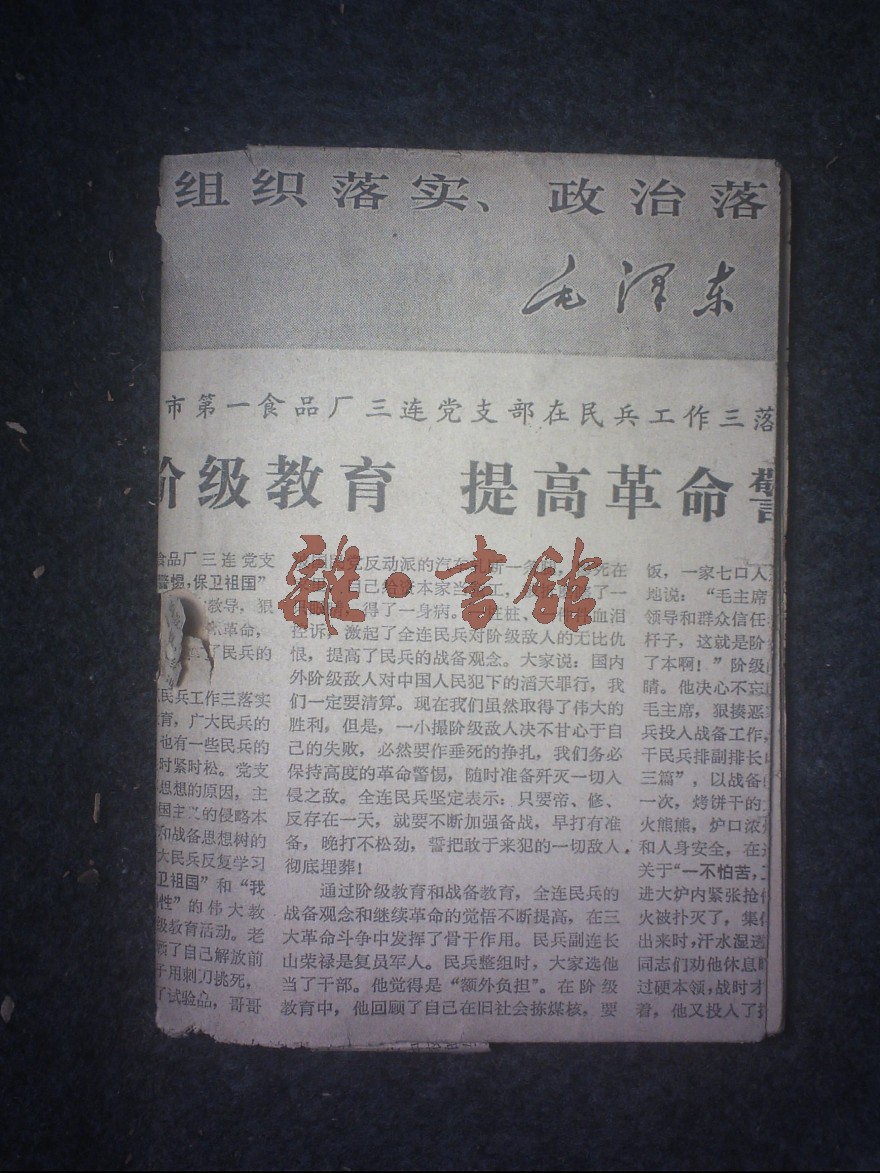 组织落实、政治落
毛泽东
市第一食品厂三连党支部在民兵工作三落
阶级教育 提高革命警
雜·書館
食品厂三连党支
警惕，保卫祖国”
教导，狠
革命，
了民兵的
民兵工作三落实
育，广大民兵的
也有一些民兵的
时紧时松。党支
思想的原因，主
国主义的侵略本
和战备思想树的
大民兵反复学习
卫祖国”和“我
性”的伟大教
级教育活动。老
了自己解放前
子用刺刀挑死，
了试验品，哥哥
民党反动派的汽车轧断一条
死在
自己给资本家当
工，
了一
得了一身病。
桩桩、
血泪
控诉，激起了全连民兵对阶级敌人的无比仇
恨，提高了民兵的战备观念。大家说：国内
外阶级敌人对中国人民犯下的滔天罪行，我
们一定要清算。现在我们虽然取得了伟大的
胜利，但是，一小撮阶级敌人决不甘心于自
己的失败，必然要作垂死的挣扎，我们务必
保持高度的革命警惕，随时准备歼灭一切入
侵之敌。全连民兵坚定表示：只要帝、修、
反存在一天，就要不断加强备战，早打有准
备，晚打不松劲，誓把敢于来犯的一切敌人
彻底埋葬！
通过阶级教育和战备教育，全连民兵的
战备观念和继续革命的觉悟不断提高，在三
大革命斗争中发挥了骨干作用。民兵副连长
山荣禄是复员军人。民兵整组时，大家选他
当了干部。他觉得是“额外负担”。在阶级
教育中，他回顾了自己在旧社会拣煤核，要
饭，一家七口人
地说：“毛主席
领导和群众信任
杆子，这就是阶
了本啊！”阶级
睛。他决心不忘
毛主席，狠揍恶
兵投入战备工作，
干民兵排副排长
三篇”，以战备
一次，烤饼干的
火熊熊，炉口浓
和人身安全，在
关于“一不怕苦，
进大炉内紧张抢
火被扑灭了，集
出来时，汗水湿透
同志们劝他休息
过硬本领，战时才
着，他又投入了